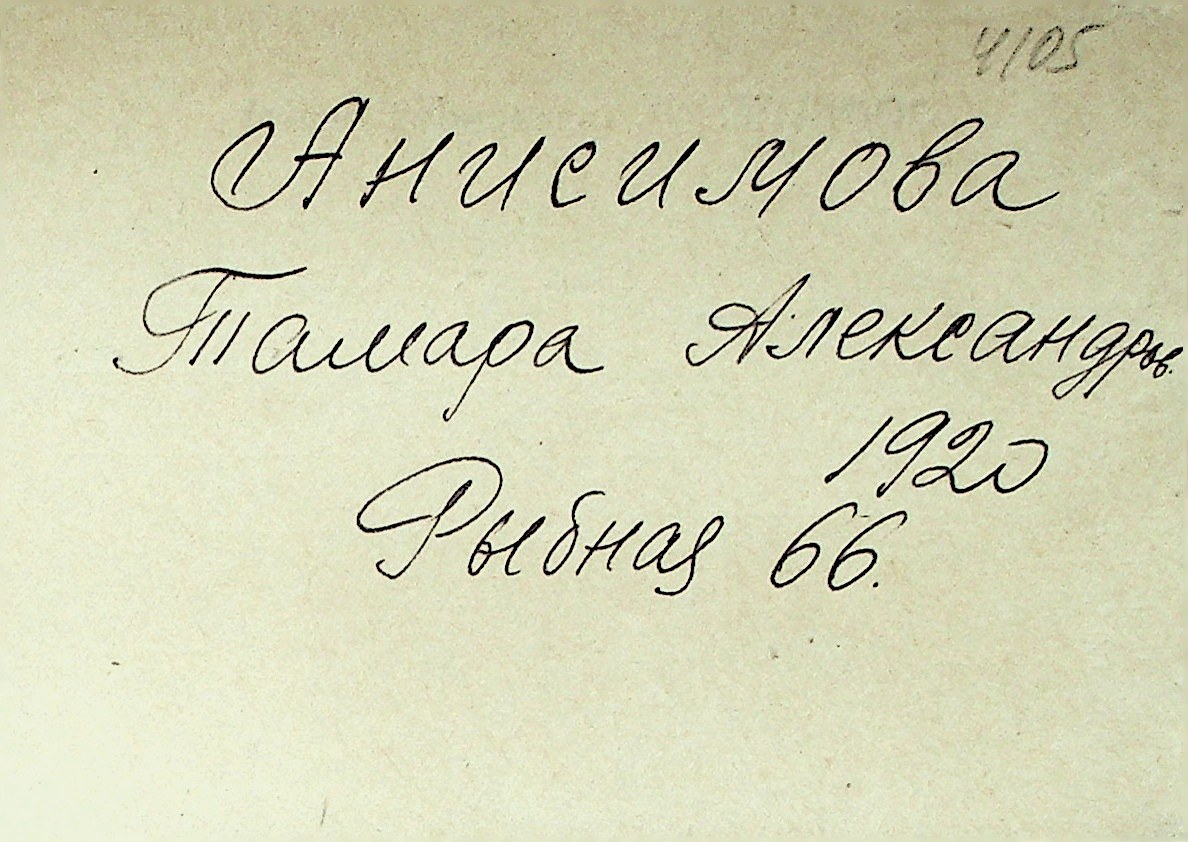 4105
Анисимова
Тамара Александров.
1920
Рыбная 66.